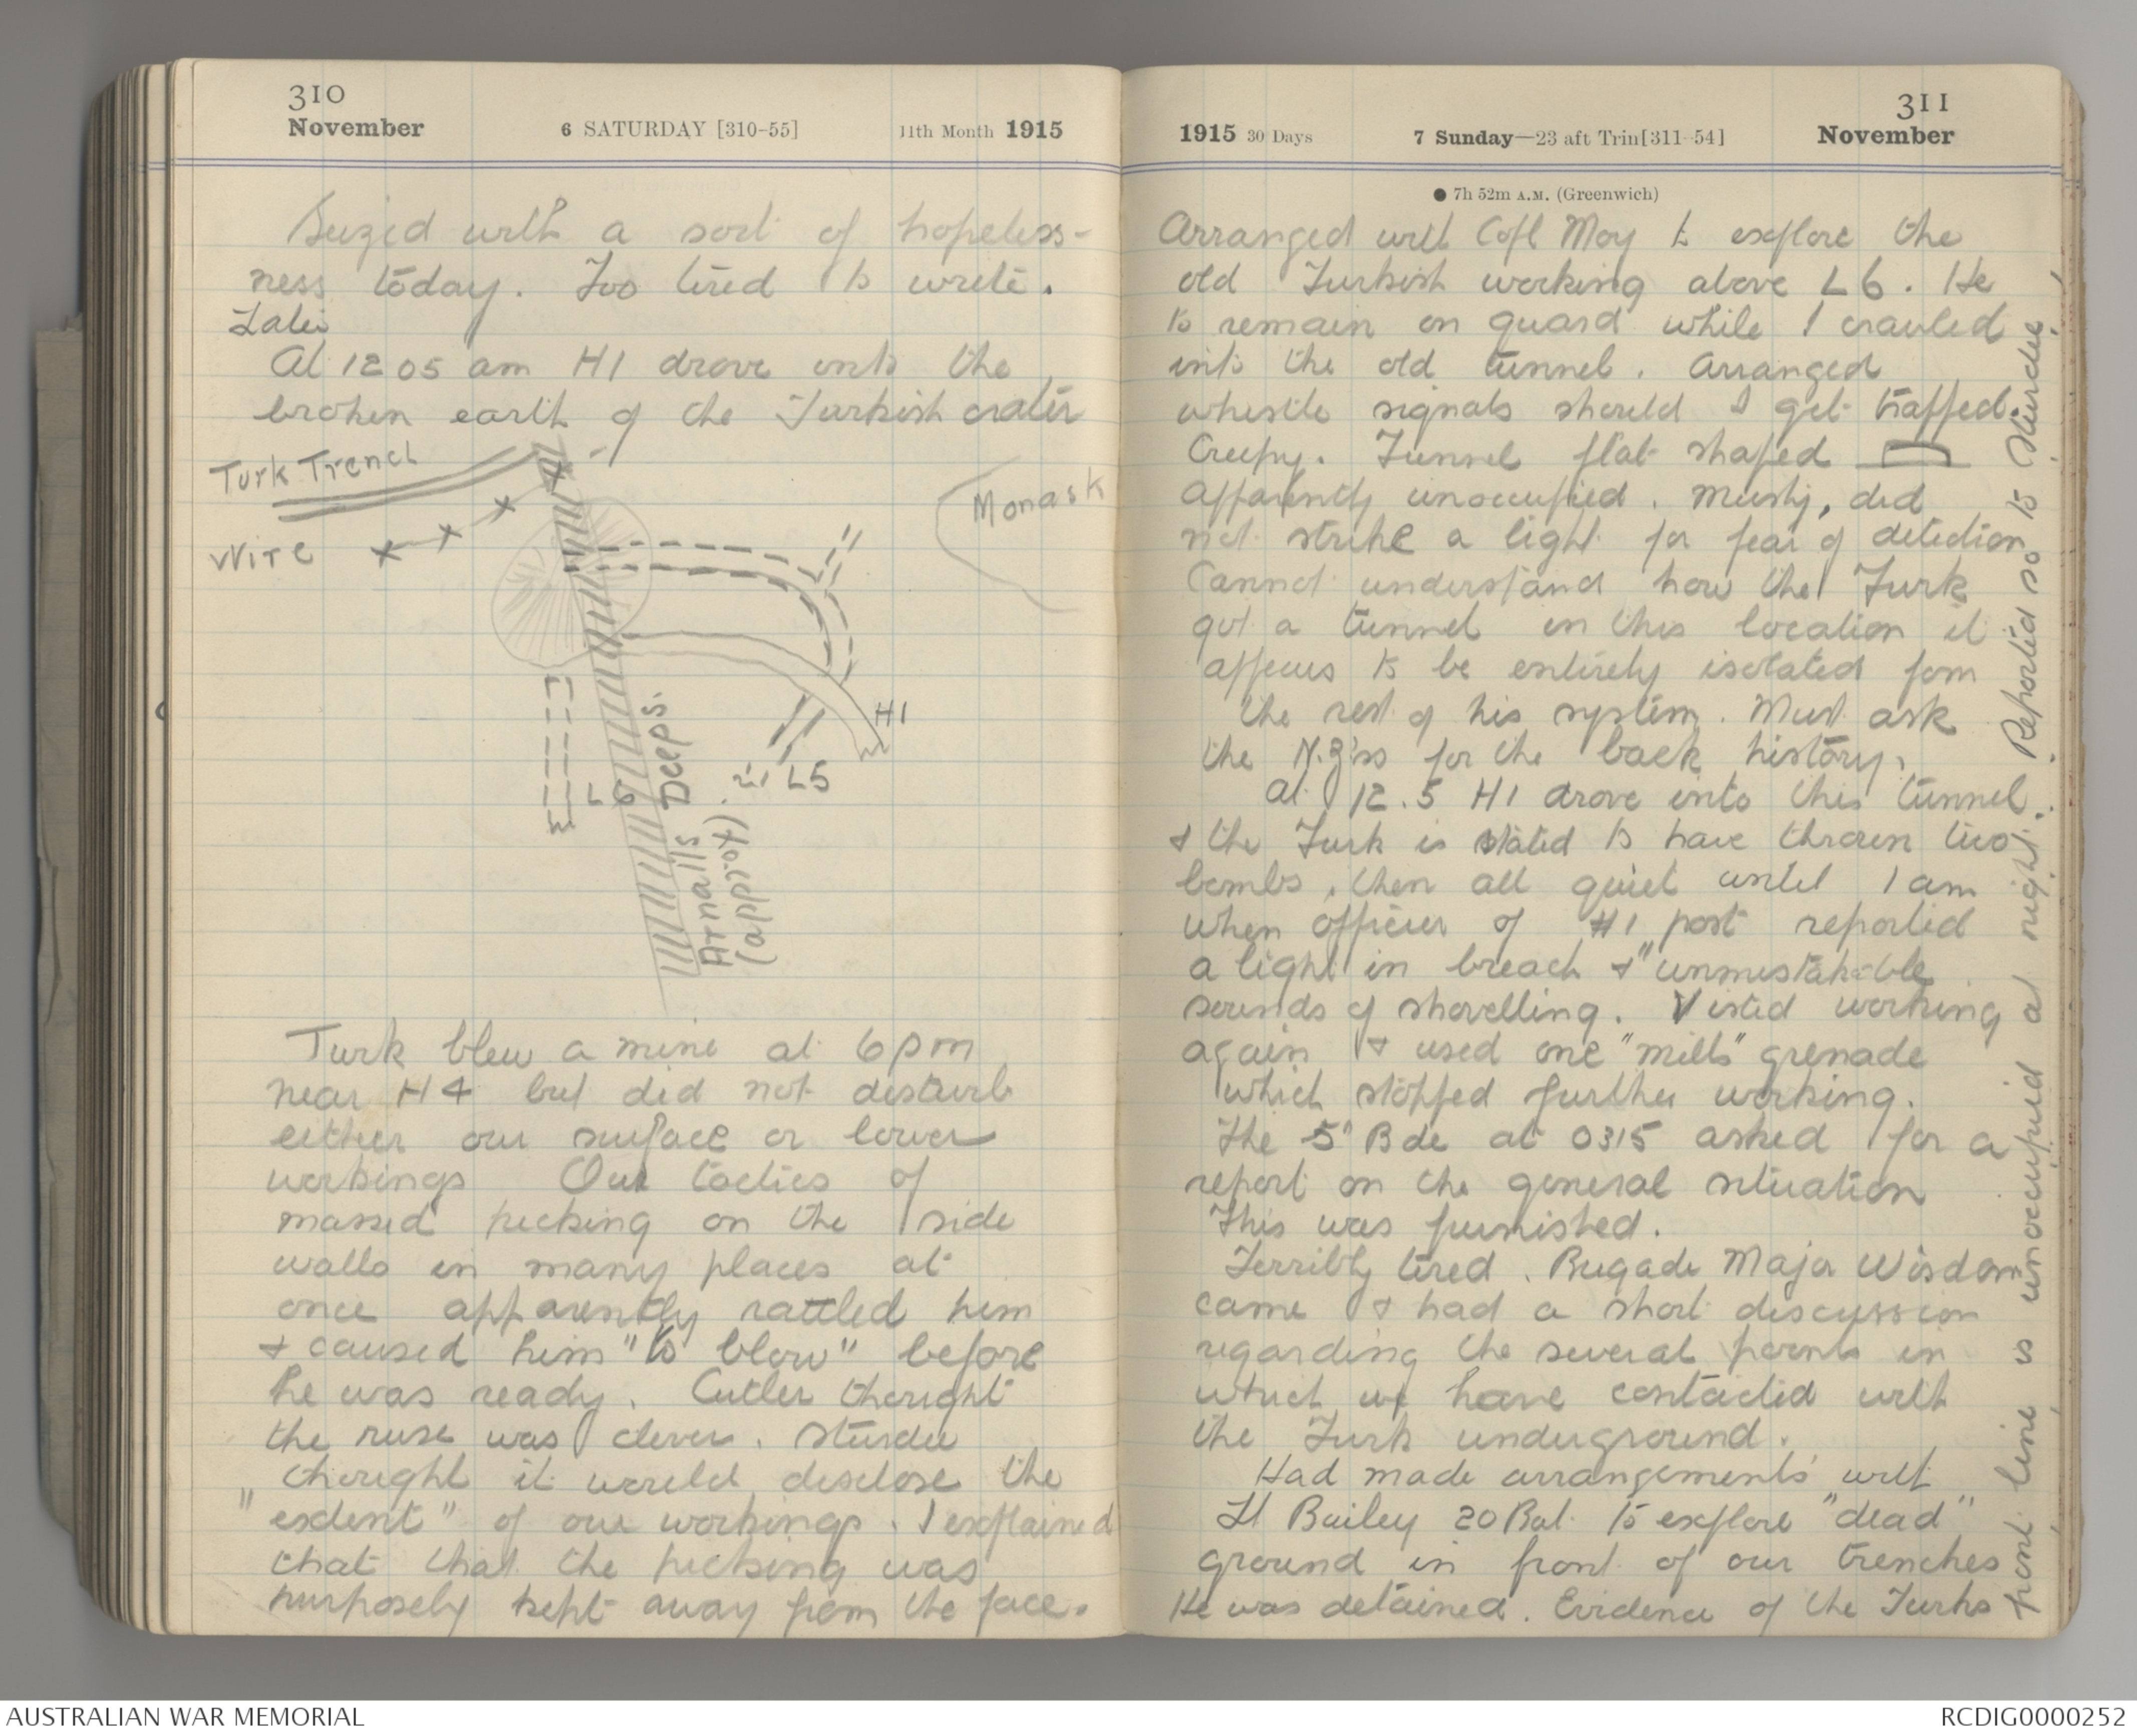 310
November 6 SATURDAY [310-55] 11th Month 1915
Seized with a sort of hopeless-
ness today. Too tired to write.
Later
At 12 05 am H1 drove into the
broken earth of the Turkish crater
Turk Trench
Wire
Monash
H1
L5
L6
Deeps
Arnalls
(approx)
Turk blew a mine at 6pm
near H4 but did not disturb
either our surface or lower
workings Our tactics of
massed picking on the side
walls in many places at
once apparently rattled him
& caused him "to blow" before
he was ready. Cutler thought
the ruse was clever. Sturdee
thought it would disclose the
"extent" of our workings. I explained
that that the picking was
purposely kept away from the face.
311
1915 30 Days 7 Sunday—23 aft Trin[311-54] November
● 7h 52m A.M. (Greenwich)
Arranged with Cpl May to explore the
old Turkish working above L6. He
to remain on guard while I crawled
into the old tunnel. Arranged
whistle signals should I get trapped.
Creepy. Tunnel flat shaped
apparently unoccupied. Musty, did
not strike a light for fear of detection
Cannot understand how the Turk
got a tunnel in this location it
appears to be entirely isolated from
the rest of his system. Must ask
the N.Z'rs for the back history.
At 12.5 H1 drove into this tunnel
& the Turk is stated to have thrown two
bombs, then all quiet until 1 am
when officer of H1 post reported
a light in breach & "unmistakable
sounds of shovelling. Visted working
again & used one "mills" grenade
which stopped further working.
The 5" Bde at 0315 asked for a
report on the general situation
This was furnished.
Terribly tired. Brigade Major Wisdom
came & had a short discussion
regarding the several points in
which we have contacted with
the Turk underground.
Had made arrangements with
Lt Bailey 20 Bat. to explore "dead"
ground in front of our trenches
He was detained. Evidence of the Turks
front line is unoccupied at night. Reported so to Sturdee.
AUSTRALIAN WAR MEMORIAL
RCDIG0000252